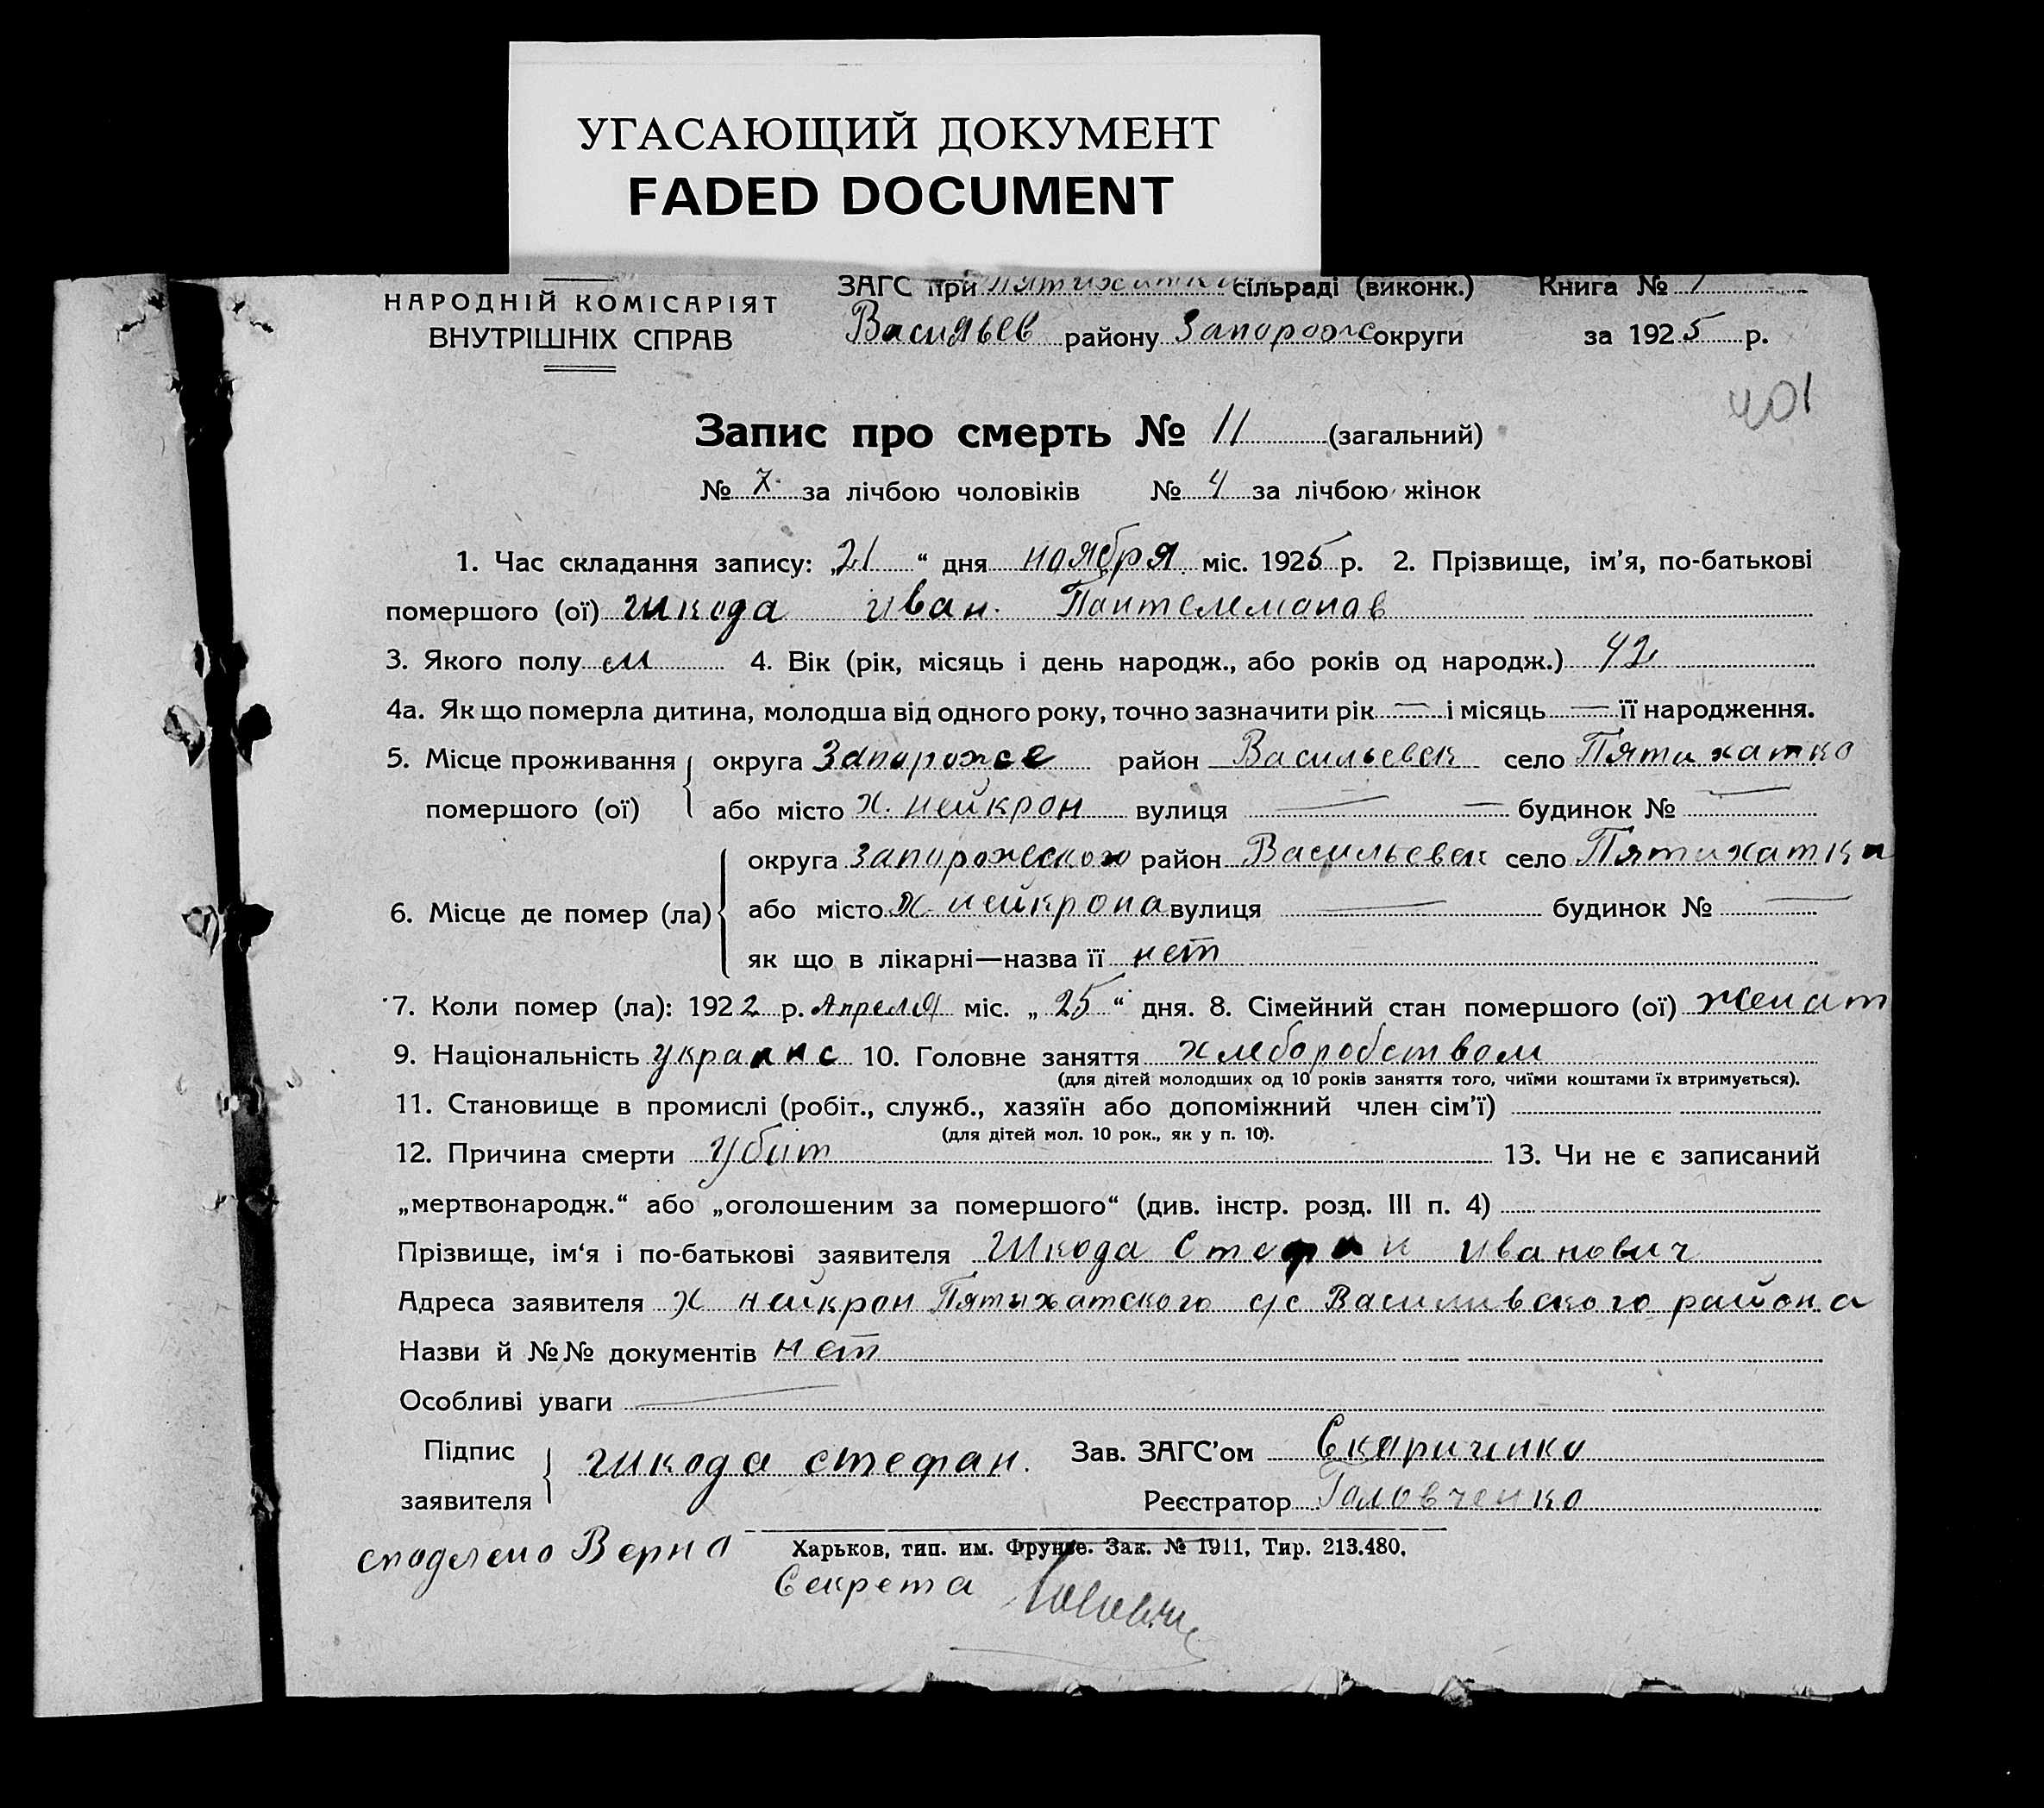 УГАСАЮЩИЙ ДОКУМЕНТ
FADED DOCUMENT
НАРОДНІЙ КОМІСАРІЯТ
ВНУТРІШНІХ СПРАВ
ЗАГС при Пятихатки сільраді (виконк.) Книга № 1
Васильев району Запорожс округи за 1925 р.
401
Запис про смерть № 11 (загальний)
№ 7 за лічбою чоловіків № 4 за лічбою жінок
1. Час складання запису: „21“ дня ноября міс. 1925 р. 2. Прізвище, ім’я, по-батькові
помершого (ої) Шкода Иван Пантелемонов
3. Якого полу м 4. Вік (рік, місяць і день народж., або років од народж.) 42
4а. Як що померла дитина, молодша від одного року, точно зазначити рік — і місяць — її народження.
5. Місце проживання помершого (ої) округа Запорожсе район Васильевск село Пятихатко
або місто х. нейкрон вулиця — будинок № —
6. Місце де помер (ла) округа Запорожского район Васильевск село Пятихатки
або місто х нейкрона вулиця — будинок № —
як що в лікарні—назва її нет
7. Коли помер (ла): 1922 р. Апреля міс. „25“ дня. 8. Сімейний стан помершого (ої) женат
9. Національність украинс 10. Головне заняття хлеборобством
(для дітей молодших од 10 років заняття того, чиїми коштами їх втримується).
11. Становище в промислі (робіт., служб., хазяїн або допоміжний член сім’ї)
(для дітей мол. 10 рок., як у п. 10).
12. Причина смерти убит 13. Чи не є записаний
„мертвонародж.“ або „оголошеним за помершого“ (див. інстр. розд. III п. 4)
Прізвище, ім‘я і по-батькові заявителя Шкода Стефан Иванович
Адреса заявителя х нейкрон Пятихатского с/с Василивского района
Назви й №№ документів нет
Особливі уваги —
Підпис заявителя Шкода стефан. Зав. ЗАГС’ом Скориченко
Реєстратор Головченко
Верно
Харьков, тип. им. Фрунзе. Зак. № 1911, Тир. 213.480.
Секрета